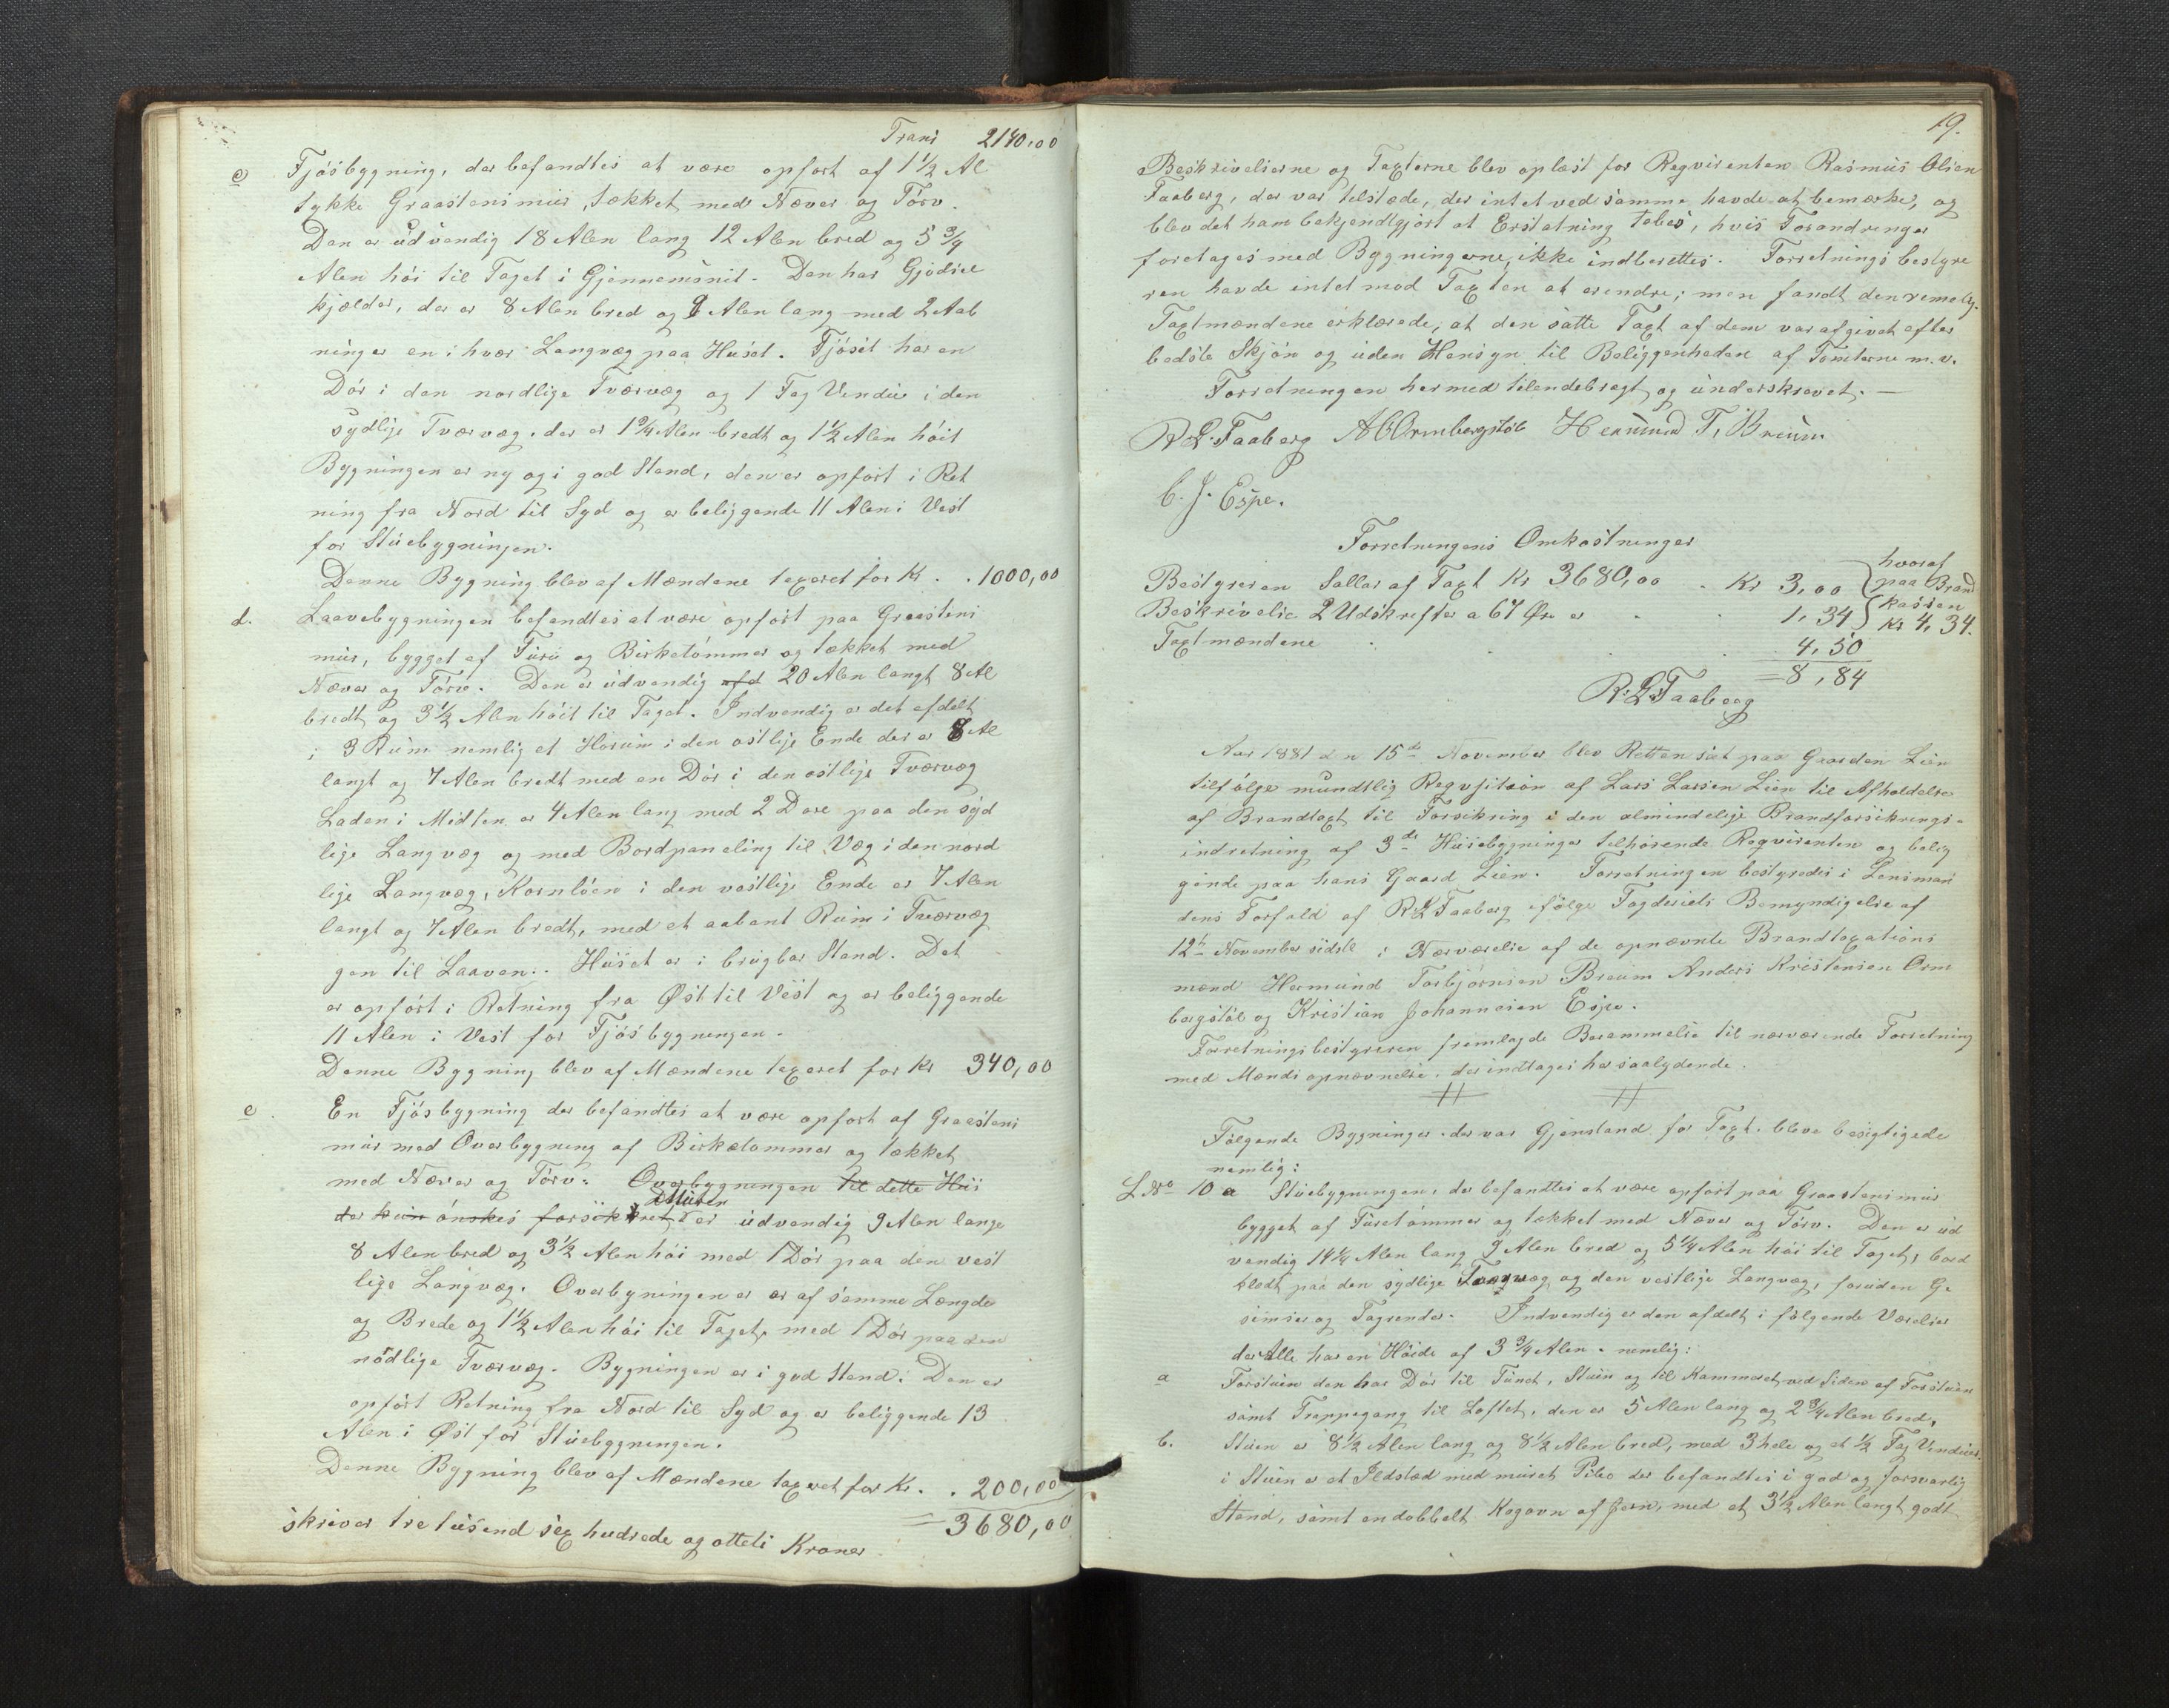 Trans 2140,00
c Fjøsbygning, der befandtes at være opfört af 1½ Al
tykke Graastensmür, tækket med Næver og Törv.
Den er üdvendig 18 Alen lang 12 Alen bred og 5¾
Alen höi til Taget i Gjennemsnit. Den har Gjödsel
kjælder, der er 8 Alen bred og 9 Alen lang med 2 Aab
ninger en i hver Langvæg paa Huset. Fjöset har en
Dör i den nordlige Tværvæg og 1 Fag Vendüe i den
sydlige Tværvæg, der er 1¾ Alen bredt og 1½ Alen höit
Bygningen er ny og i god Stand, den er opfört i Ret
ning fra Nord til Syd og er beliggende 11 Alen i Vest
for Stüebygningen.
Denne Bygning blev af Mændene taxeret for Kr . . 1000,00
d. Laavebygningen befandtes at være opfört paa Graastens
mür, bygget af Fürü og Birketömmer og tækket med
Næver og Törv. Den er üdvendig afd 20 Alen langt 8 Al
bredt og 3½ Alen höit til Taget. Indvendig er det afdelt
i 3 Rüm nemlig et Hörüm i den östlige Ende der er 8 Al
langt og 7 Alen bredt med en Dör i den östlige Tværvæg
Laden i Midten er 4 Alen lang med 2 Döre paa den syd
lige Langvæg og med Bordpaneling til Væg i den nord
lige Langvæg, Kornlöen i den vestlige Ende er 7 Alen
langt og 7 Alen bredt, med et aabent Rüm i Tværvæg
gen til Laaven. Hüset er i brügbar Stand. Det
er opfört i Retning fra Øst til Vest og er beliggende
11 Alen i Vest for Fjösbygningen.
Denne Bygning blev af Mændene taxeret for Kr 340,00
e. En Fjösbygning der befandtes at være opfört af Graastens
mür med Overbygning af Birketømmer og tækket
med Næver og Törv. Overbygningen til dette Hüs
der kün önskes forsikkret er üdvendig 9 Alen lange
8 Alen bred og 3½ Alen höi med 1 Dör paa den vest
lige Langvæg. Overbyningen er er af samme Længde
og Brede og 1½ Alen höi til Taget, med 1 Dör paa den
nödlige Tværvæg. Bygningen er i god Stand. Den er
opfört Retning fra Nord til Syd og er beliggende 13
Alen i Øst for Stüebygningen.
Denne Bygning blev af Mændene taxeret for Kr. . 200,00
= 3680,00
skriver tre tüsend sex hudrede og otteti Kroner
19.
Beskrivelserne og Taxterne blev oplæst for Reqvirenten Rasmüs Olsen
Faaberg, der var tilstæde, der intet ved samme havde at bemærke, og
blev det ham bekjendtgjört at Erstatning tabes, hvis Forandringer
foretages med Bygningerne, ikke indberettes. Forretnings bestyre
ren havde intet mod Taxten at erendre; men fandt den remelig.
Taxtmændene erklærede, at den satte Taxt af dem var afgivet efter
bedste Skjön og üden Hensyn til Beliggenheden af Tomterne m.v.
Forretningen hermed tilendebragt og ünderskrevet. —
R L Faaberg A C Ormbergstöl Hermund T. Breüm
C. J. Espe.
Forretningens Omkostninger
Bestyreren Sallar af Taxt Kr 3680,00 . Kr 3,00
Beskrivelse 2 Udskrifter a 67 Øre er . . 1,34
hvoraf
paa Brand
kassen
Kr 4,34.
Taxtmændene . . . 4,50
= 8,84
R. L. Faaberg
Aar 1881 den 15de November blev Retten sat paa Gaarden Lien
tilfölge mündtlig Reqvisition af Lars Larsen Lien til Afholdelse
af Brandtaxt til Forsikring i den almindelige Brandforsikrings-
indretning af 3de Hüsebygninger tilhörende Reqvirenten og belig
gende paa hans Gaard Lien. Forretningen bestyredes i Lensman
dens Forfald af R L Faaberg ifölge Fogderiets Bemyndigelse af
12te November sidstl i Nærværelse af de opnævnte Brandtaxations
mænd Hermünd Torbjörnsen Breum Anders Kristensen Orm
bergstöl og Kristian Johannesen Espe.
Forretningsbestyreren fremlagde Berammelse til nærværende Forretning
med Mændsopnævnelse, der indtages her saalydende.
# #
Fölgende Bygninger der var Gjenstand for Taxt, bleve besigtigede
nemlig:
L.No 10 a Stüebygningen, der befandtes at være opfört paa Graastensmür
bygget af Füretömmer og tækket med Næver og Törv. Den er üd
vendig 14¼ Alen lang 9 Alen bred og 5¼ Alen höi til Taget, bord
klædt paa den sydlige Tværvæg og den vestlige Langvæg, foruden Ge
simser og Tagrender. Indvendig er den afdelt i fölgende Værelser
der Alle har en Höide af 3¾ Alen. nemlig:
a Forstüen den har Dör til Tünet, Stüen og til Kammeret ved Siden af Forstüen
samt Trappegang til Loftet, den er 5 Alen lang og 2¾ Alen bred,
b. Stüen er 8½ Alen lang og 8½ Alen bred, med 3 hele og et ½ Fag Vendüer.
i Stüen er et Ildsted med müret Pibe der befandtes i god og forsvarlig
Stand, samt en dobbelt Kogovn af Jern, med et 3½ Alen langt godt